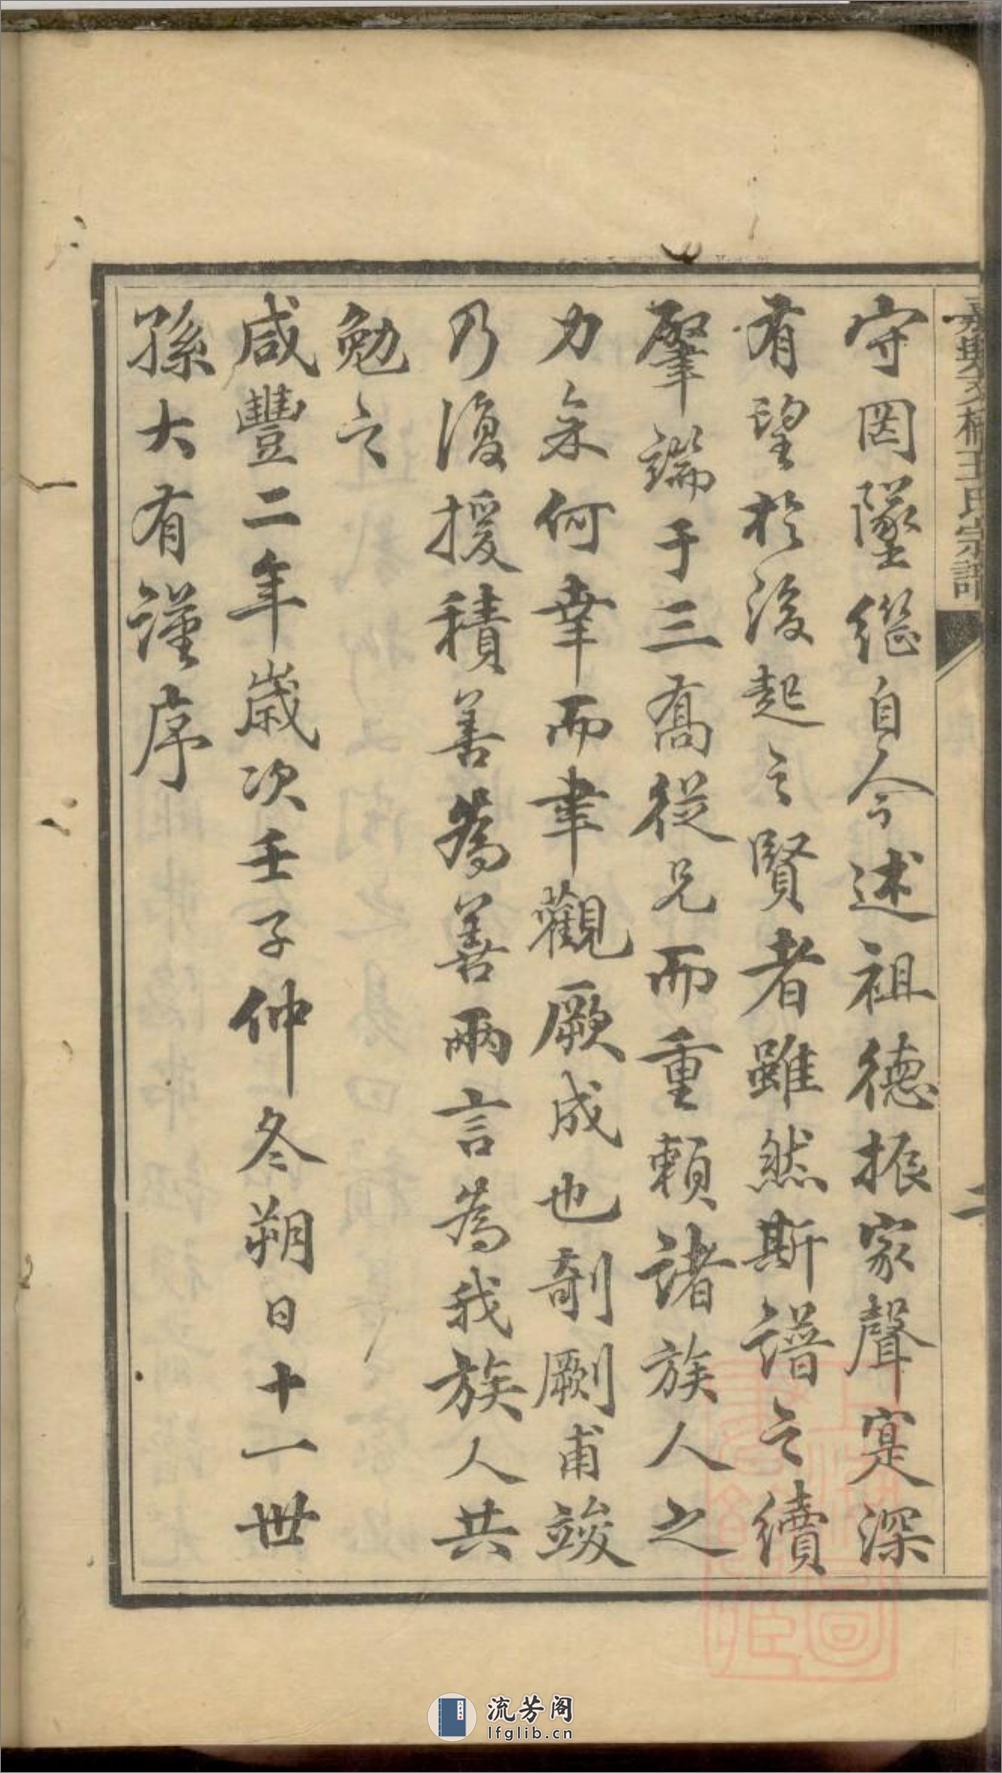 嘉興交橋王氏宗譜
二
守罔墜繼自今述祖德振家聲寔深
有望於後起之賢者雖然斯譜之續
肇端于三喬從兄而重賴諸族人之
力余何幸而聿觀厥成也剞劂甫竣
乃復援積善為善兩言為我族人共
勉之
咸豐二年歲次壬子仲冬朔日十一世
孫大有謹序
流芳阁
lfglib.cn